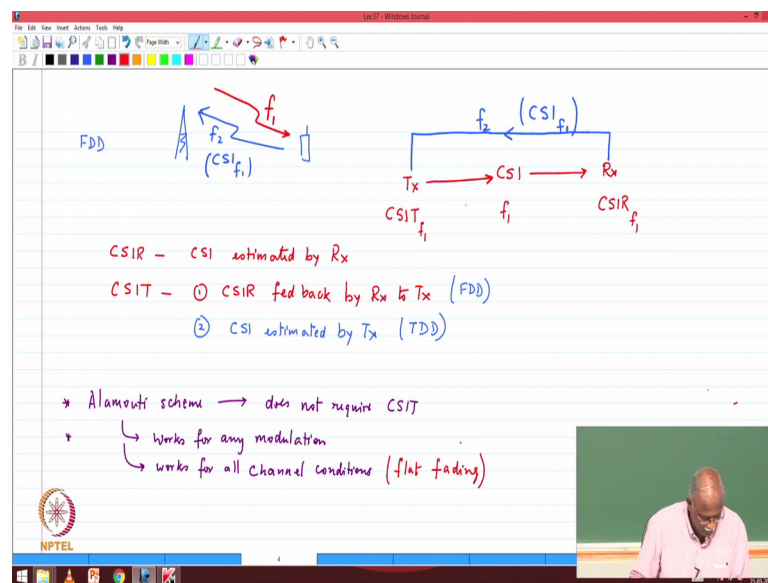 Lec37 - Windows Journal
File Edit View Insert Actions Tools Help
Page Width
B I
FDD
f1
f2
(CSI f1)
f2 (CSI f1)
Tx → CSI → Rx
CSIT f1 f1 CSIR f1
CSIR – CSI estimated by Rx
CSIT – ① CSIR fed back by Rx to Tx (FDD)
② CSI estimated by Tx (TDD)
* Alamouti scheme → does not require CSIT
* ↳ works for any modulation
↳ works for all channel conditions (flat fading)
NPTEL
4